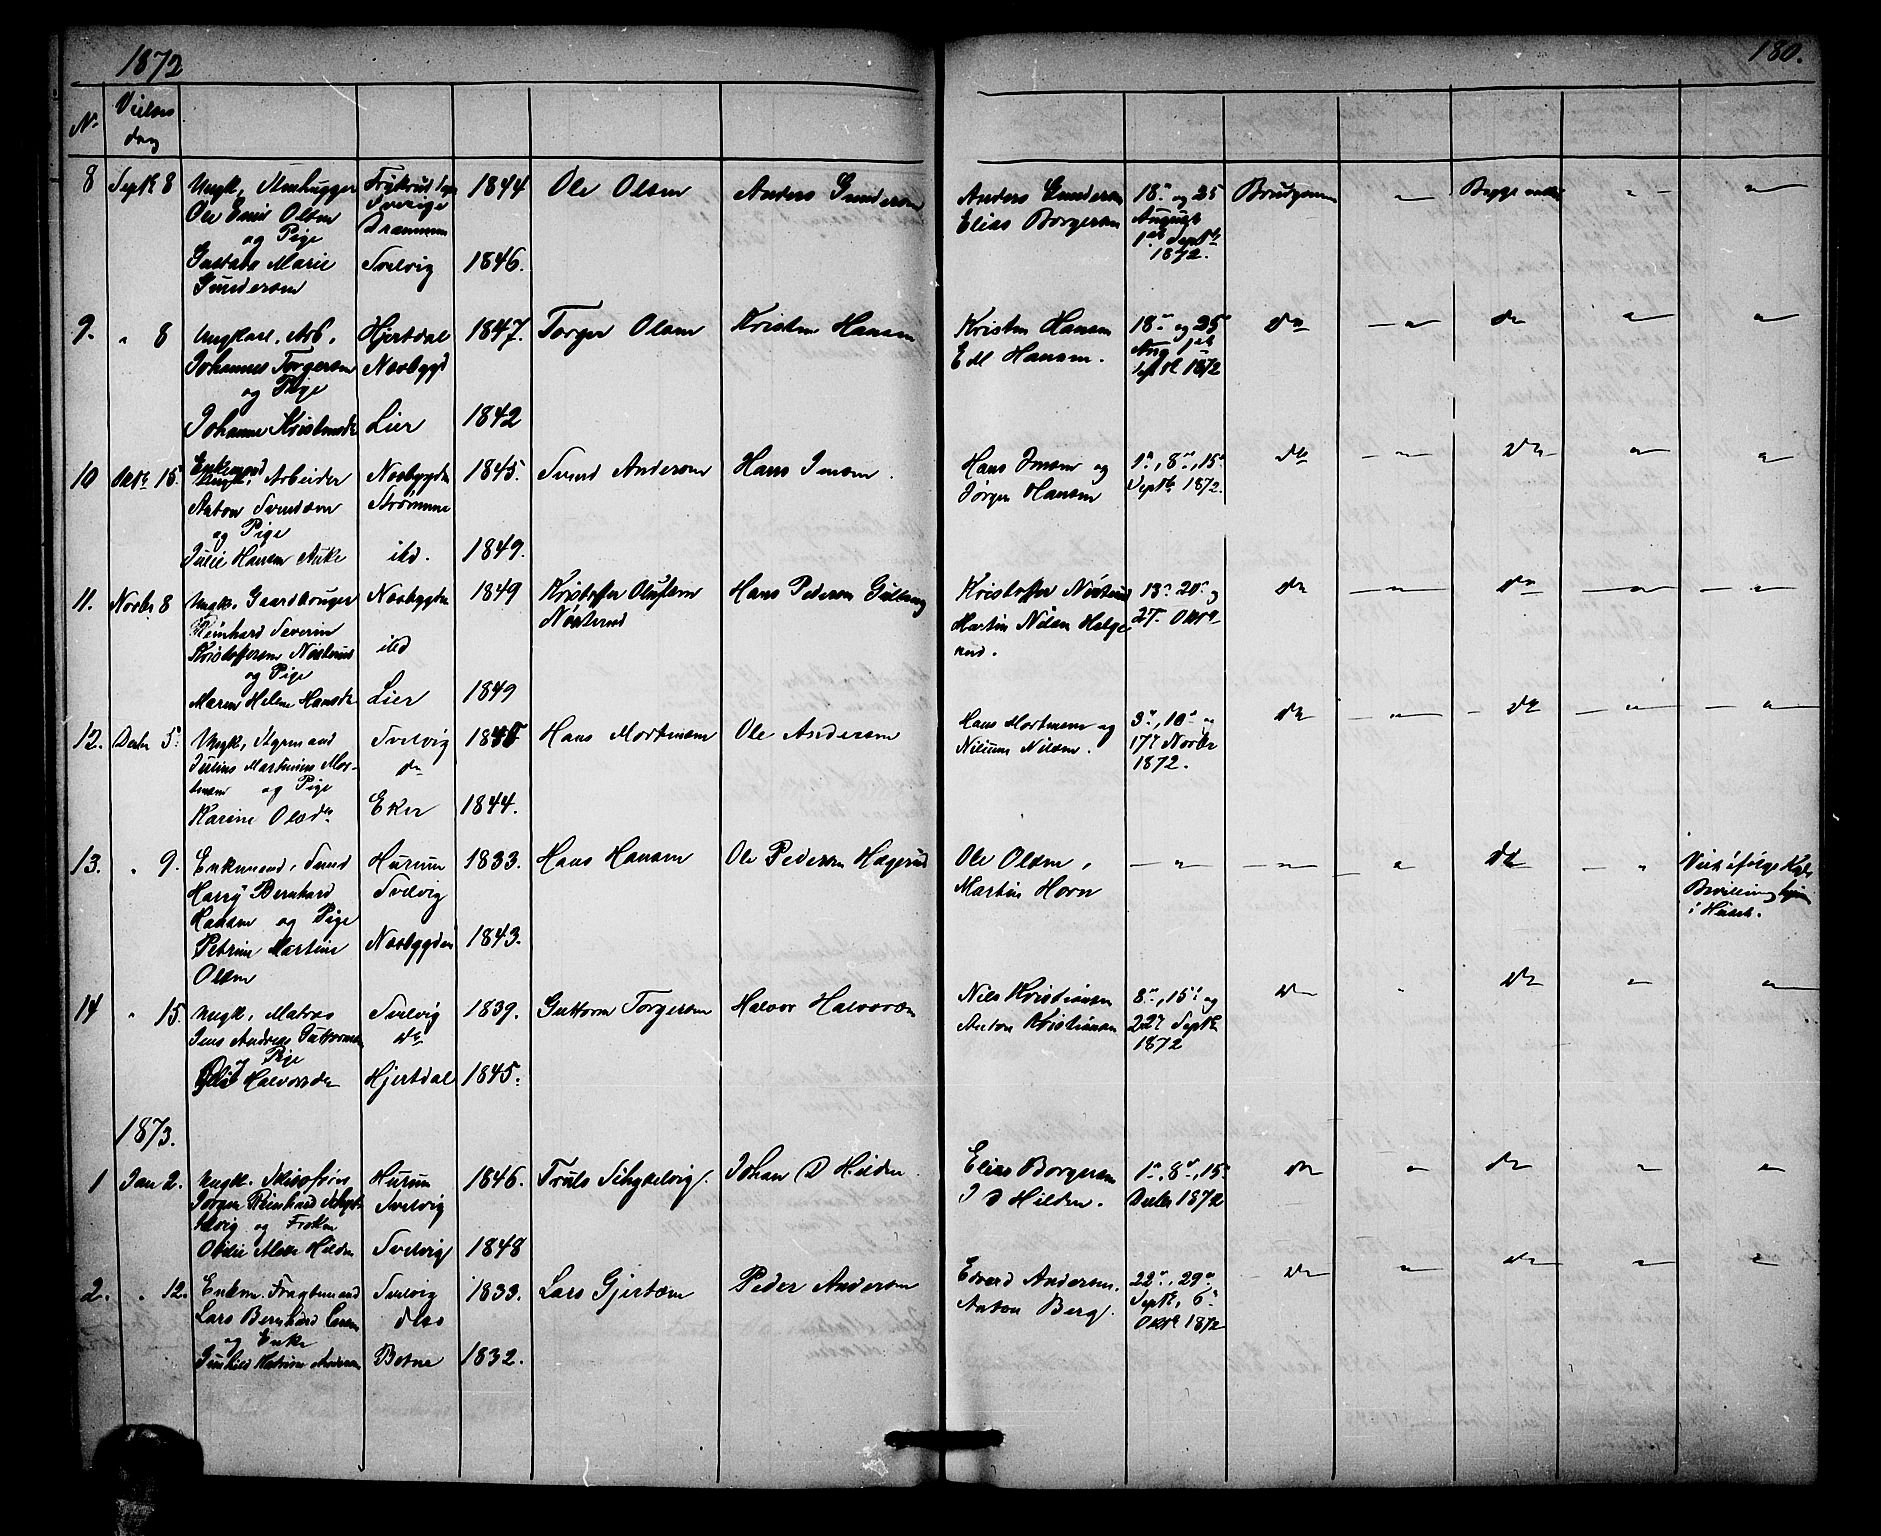 1872
180.
N.
Vielses
dag
8 Septb 8 Ungk, Stenhugger
Ole Emil Olsen
og Pige
Gustava Marie
Gundersen
Sverige
Drammen
Svelvig
1844
1846.
Ole Olsen
Anders Gundersen
Anders Gundersen
Elias Borgersen
18de og 25
August
1ste Septb
1872.
Brudgommen
— " —
Begge
— " —
"
9. " 8 Ungkarl, Arb.
Johannes Torgersen
og Pige
Johanne
Hjertdal
Nesbygd
Lier
1847.
1842
Torger Olsen
Kristen Hansen
Kristen Hansen
Edl Hansen.
18de og 25
Aug 1ste
Septb 1872
do
— "
do
"
"
10 15 Enkemand
Arbeider
Anton Svendsen
og Pige
Julie Hansen
Nesbygden
Strømme
ibd.
1845.
1849.
Svend Andersen
Hans Jensen.
Hans Jensen og
Jørgen Hansen
1, 8, 15
Septb 1872.
do
— "
do
"
"
11. Novbr 8 Ungk. Gaardbruger
Reinhard Severin
Kristoffersen Nøsterud
og Pige
Maren Helene Hansdr
Nesbygden
ibd
Lier
1849
1849
Kristoffer Olufsen
Nøsterud
Hans Pedersen
Kristoffer Nøsterud
Martin Nilsen
13, 20 og
27 Oktbr
do
— " —
do
— " —
— " —
12. Decbr 5 Ungk, Styrmand
Julius Martinius Mor-
tensen og Pige
Karine Olsdr
Svelvig
do
Eker
1845
1844.
Hans Mortensen
Ole Andersen
Hans Mortensen og
Nilsen.
3, 10 og
17 Novbr
1872.
do
— " —
do
— " —
— "
13. " 9. Enkemand,
Harry Bernhard
Hansen og Pige
Petrine Martine
Olsen
Hurum
Svelvig
Nesbygden
1833.
1843.
Hans Hansen
Ole Pedersen Hagerud
Ole Olsen,
Martin Horn
— " —
— " —
"
do
"
Viet ifølge Kgl.
Bevilling hjem
i Huset.
14 " 15. Ungk, Matros
Jens Andreas Guttormsen
og Pige
Halvorsdr
Svelvig
do
Hjertdal
1839.
1845.
Guttorm Torgersen
Halvor Halvorsen
Nils Kristiansen
Anton Kristiansen
8, 15 og
22 Septb
1872
do
"
do
"
"
1873.
1 Jan 2. Ungk. Skibsfører
Jørgen Reinhard
og Frøken
Otilie Hilden
Hurum
Svelvig
Svelvig
1846.
1848
Truls
Johan D Hilden
Elias Borgersen
J D Hilden.
1, 8, 15
Decbr 1872
do
"
do
"
"
2. " 12. Enkm. Fragtemand
Lars Bernhard Larsen
og Enke
Gunhild Katrine Andersen
Svelvig
Botne
1833.
1832.
Lars Gjertsen
Peder Andersen
Edvard Andersen.
Anton Berg.
22, 29
Septb, 6
Oktbr 1872
do
"
do
"
"